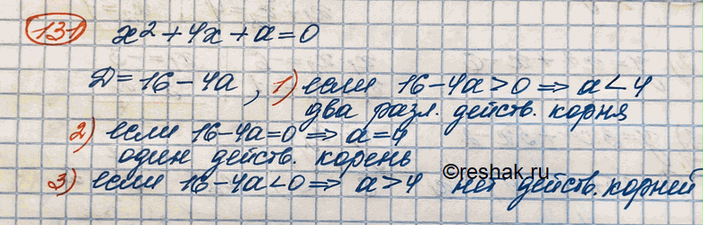 131 x²+4x+a=0
D=16-4a, 1) если 16-4a>0 ⇒ a<4
два разл. действ. корня
2) если 16-4a=0 ⇒ a=4
один действ. корень
©reshak.ru
3) если 16-4a<0 ⇒ a>4 нет действ. корней